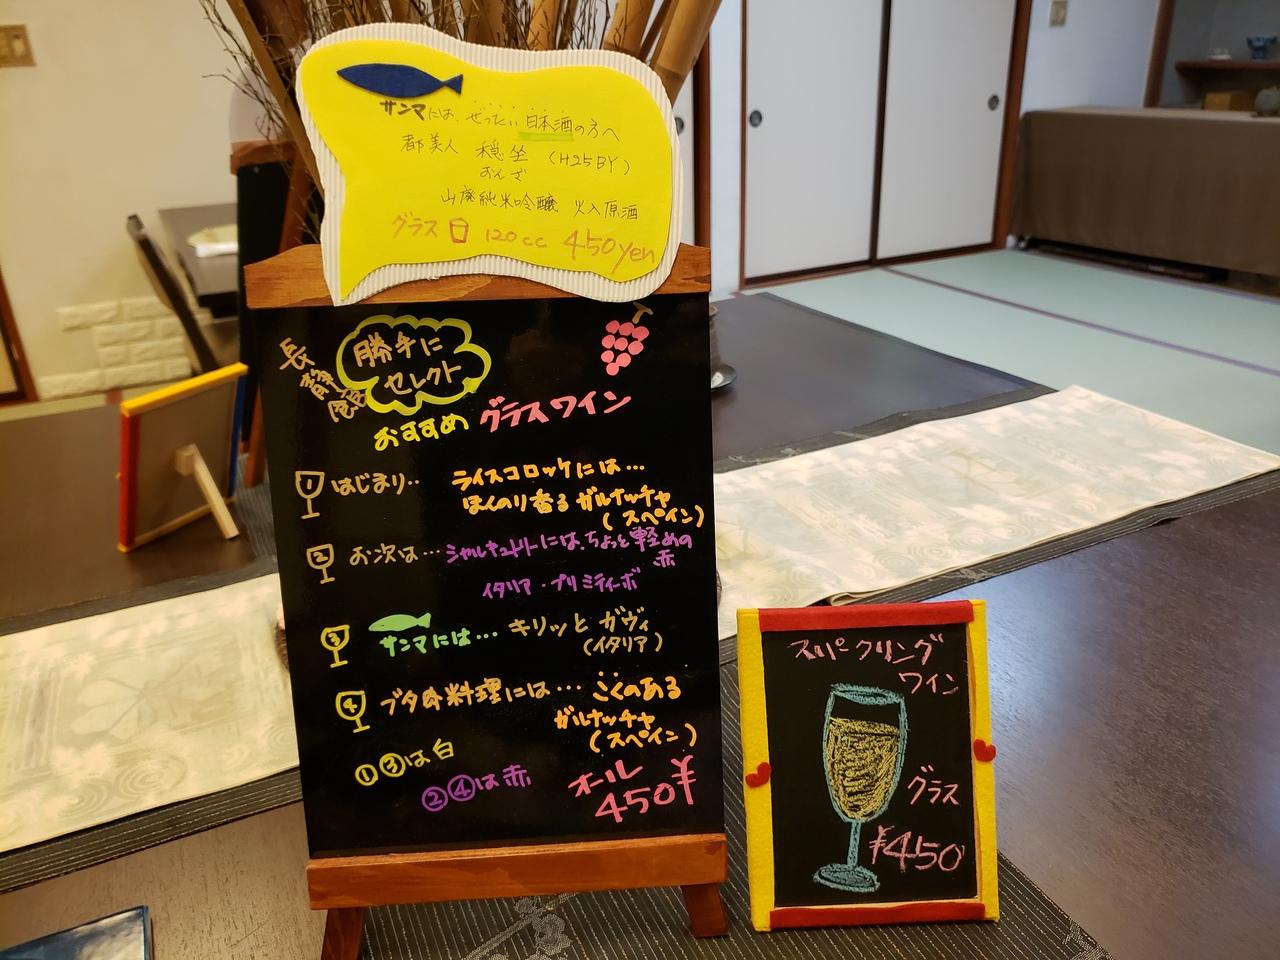 サンマには、ぜったい日本酒の方へ
都美人 穏坐 (H25BY)
おんざ
山廃純米吟醸 火入原酒
グラス 120cc 450yen
長
静
勝手に
セレクト
おすすめ グラスワイン
1 はじまり‥ ライスコロッケには…
ほんのり香る ガルナッチャ
(スペイン)
2 お次は… シャルキュトリーには、ちょっと軽めの
赤
イタリア・プリミティーボ
3 サンマには… キリッと ガヴィ
(イタリア)
4 ブタ肉料理には… こくのある
ガルナッチャ
(スペイン)
①③は白
②④は赤
オール
450¥
スパークリング
ワイン
グラス
¥450